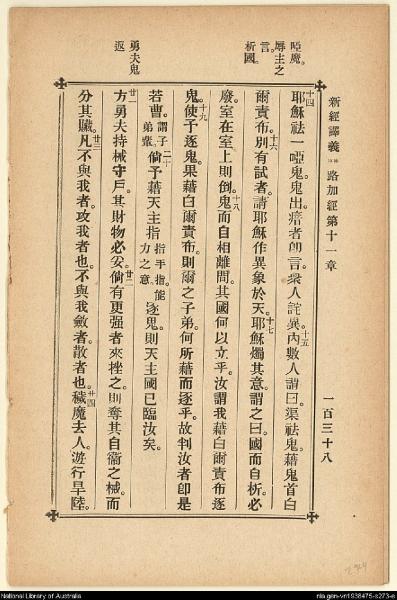 新經譯義 路加經第十一章 一百三十八
啞魔。
辱主之
言。
析國。
十四耶穌祛一啞鬼。鬼出。瘖者卽言。衆人詫異。十五內數人謂曰。渠祛鬼。藉鬼首白
爾責布。十六別有試者。請耶穌作異象於天。十七耶穌燭其意。謂之曰。國而自析。必
廢。室在室上則倒。十八鬼而自相離間。其國何以立乎。汝謂我藉白爾責布逐
鬼。十九使予逐鬼。果藉白爾責布。則爾之子弟。何所藉而逐乎。故判汝者卽是
若曹。謂子弟輩。二十倘予藉天主指指手指。能力之意。逐鬼。則天主國已臨汝矣。
勇夫鬼
返
廿一方勇夫持械守戶。其財物必安。廿二倘有更强者來挫之。則奪其自衞之械。而
分其贓。廿三凡不與我者。攻我者也。不與我斂者。散者也。廿四穢魔去人。遊行旱陸。
National Library of Australia
nla.gen-vn1938475-s273-e